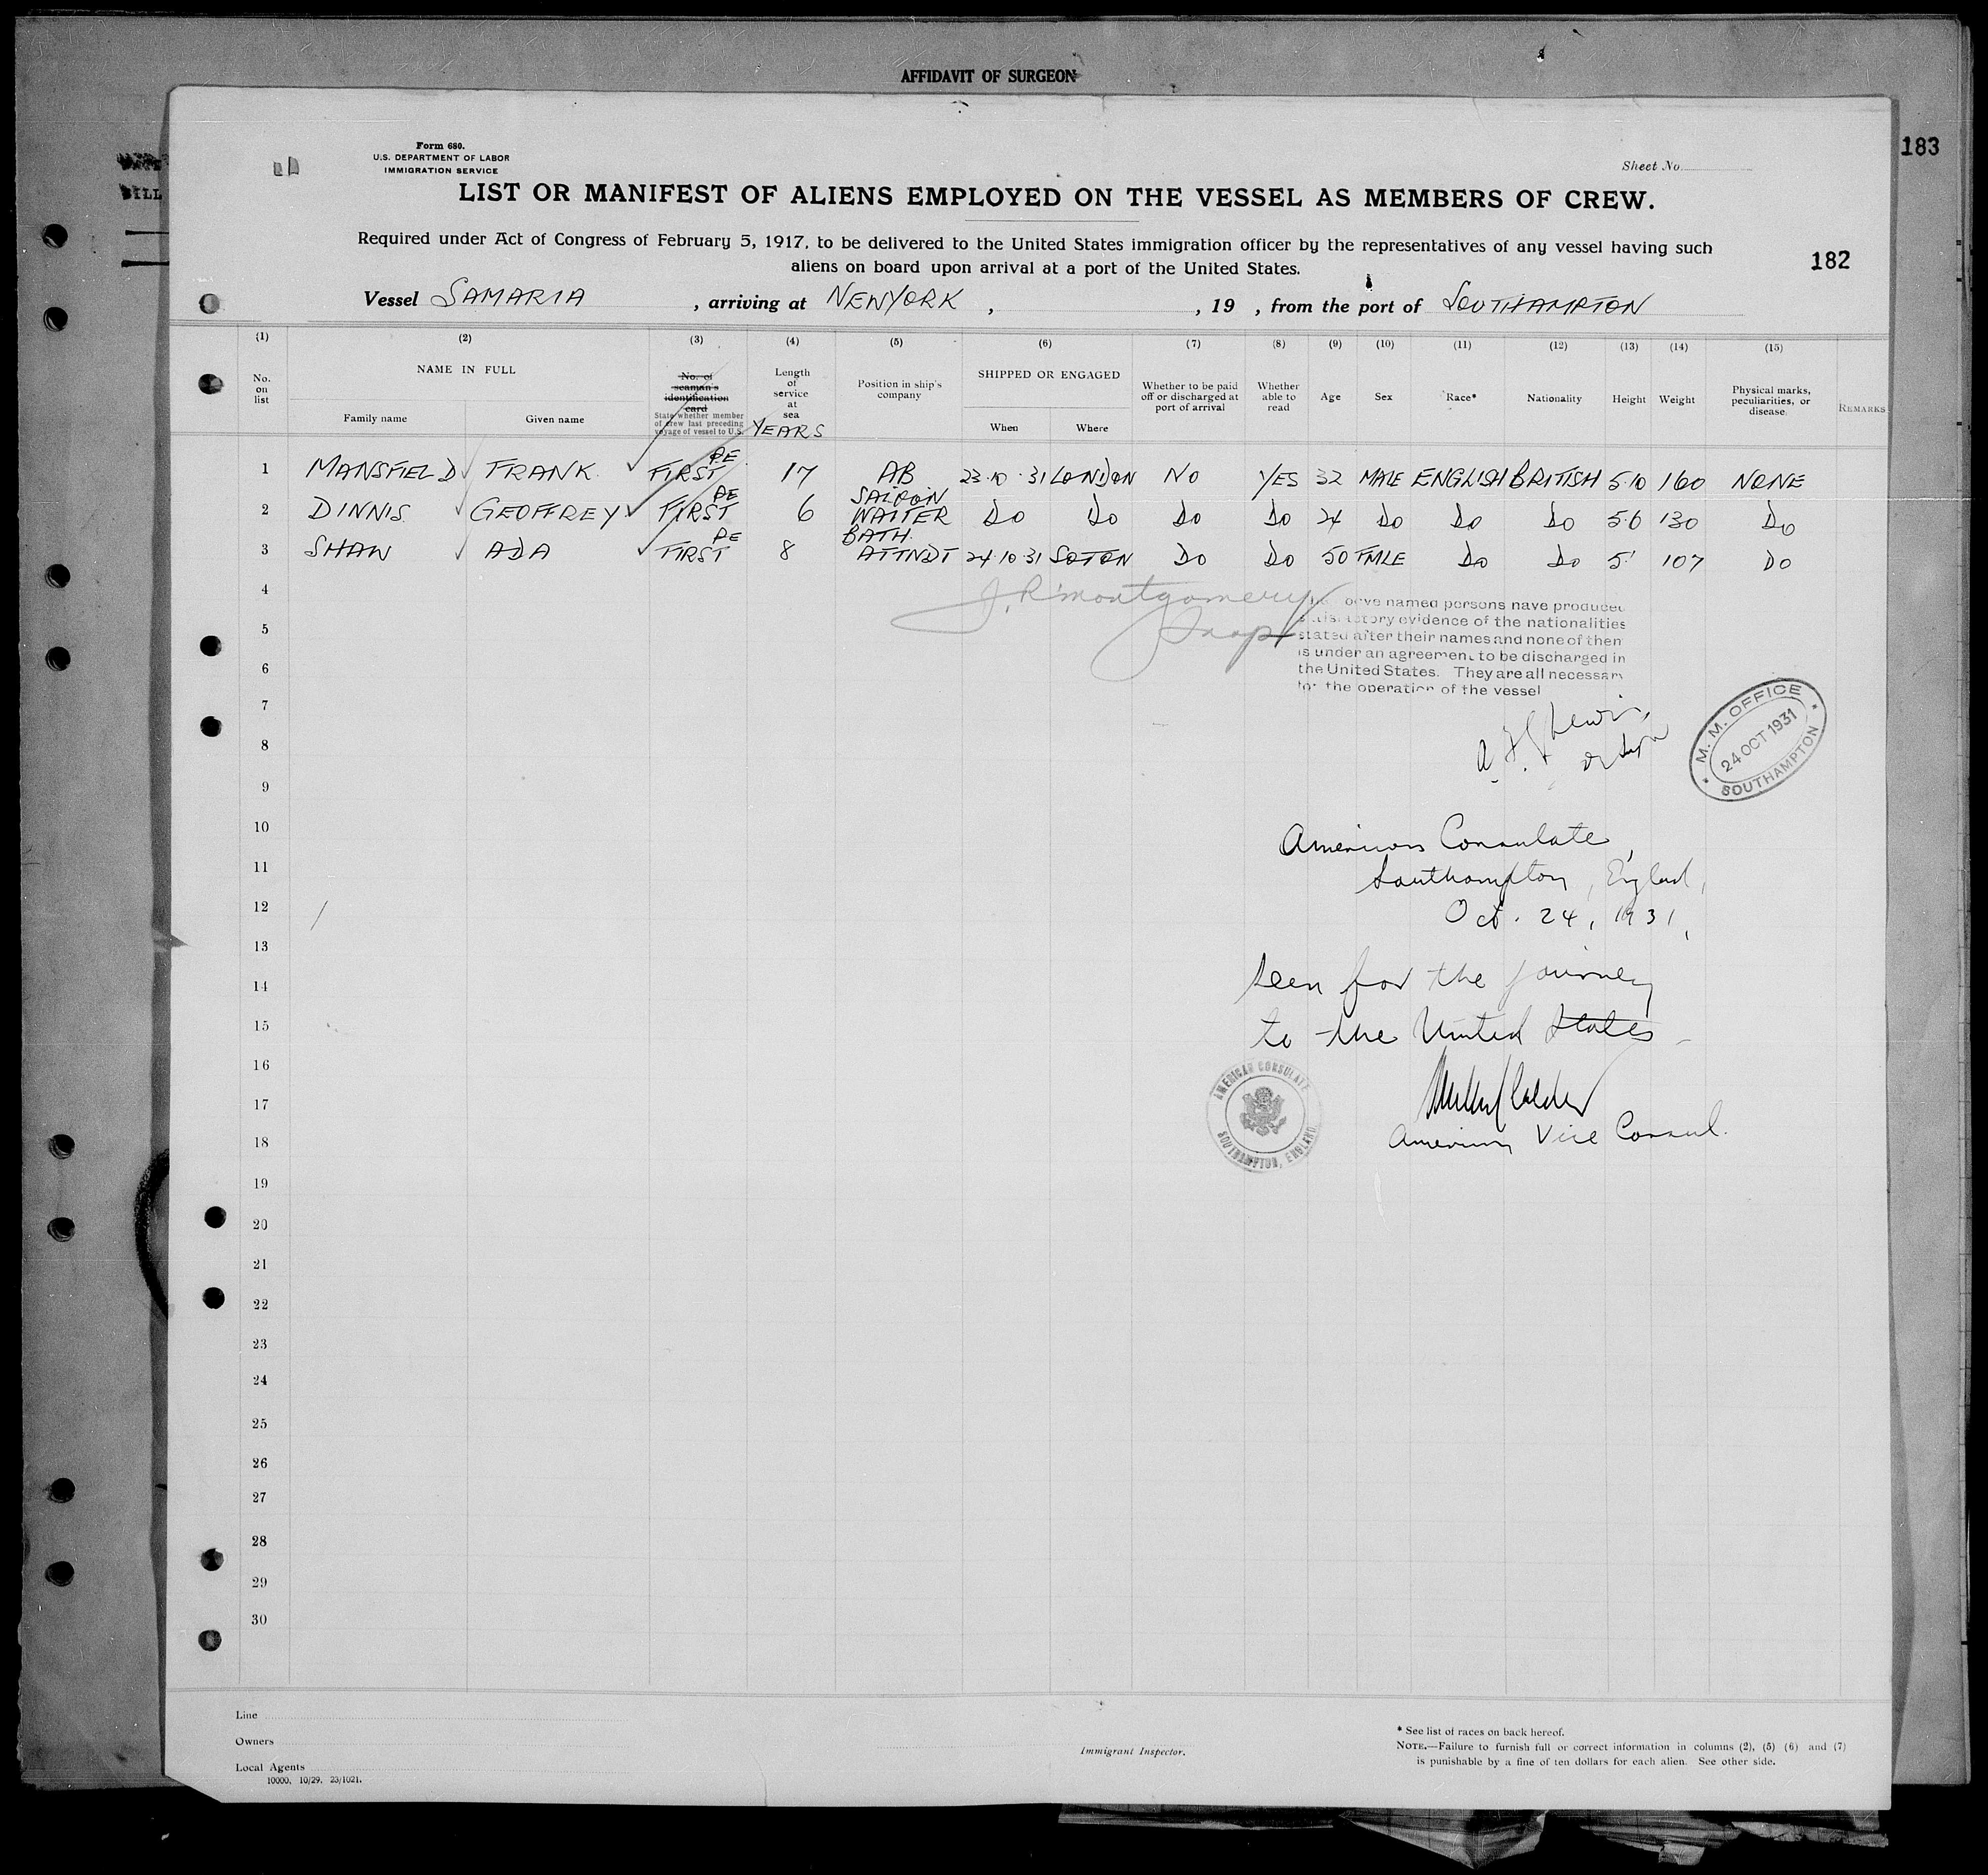 AFFIDAVIT OF SURGEON
183
Form 680.
U.S. DEPARTMENT OF LABOR
IMMIGRATION SERVICE
Sheet No.
LIST OR MANIFEST OF ALIENS EMPLOYED ON THE VESSEL AS MEMBERS OF CREW.
Required under Act of Congress of February 5, 1917, to be delivered to the United States immigration officer by the representatives of any vessel having such
aliens on board upon arrival at a port of the United States.
182
Vessel SAMARIA , arriving at NEWYORK , , 19 , from the port of SOUTHAMPTON
(1) (2) (3) (4) (5) (6) (7) (8) (9) (10) (11) (12) (13) (14) (15)
No. on list
NAME IN FULL
Family name Given name
No. of seaman's identification card
State whether member of crew last preceding voyage of vessel to U.S.
Length of service at sea
YEARS
Position in ship's company
SHIPPED OR ENGAGED
When Where
Whether to be paid off or discharged at port of arrival
Whether able to read
Age
Sex
Race*
Nationality
Height
Weight
Physical marks, peculiarities, or disease
REMARKS
1 MANSFIELD FRANK FIRST PE 17 AB 23·10·31 LONDON NO YES 32 MALE ENGLISH BRITISH 5·10 160 NONE
2 DINNIS GEOFFREY FIRST PE 6 SALOON WAITER DO DO DO DO 24 DO DO DO 5·6 130 DO
3 SHAW ADA FIRST PE 8 BATH ATTNDT 24·10·31 SOTON DO DO 50 FMLE DO DO 5' 107 DO
4
J. R. Montgomery
Insp
named persons have produced
satisfactory evidence of the nationalities
stated after their names and none of them
is under an agreement to be discharged in
the United States. They are all necessary
for the operation of the vessel
5
6
7
8
Lewis
M. M. OFFICE
24 OCT 1931
SOUTHAMPTON
9
10
American Consulate,
11
Southampton, England,
12
Oct. 24, 1931,
13
14
Seen for the journey
15
to the United States
16
AMERICAN CONSULATE
SOUTHAMPTON, ENGLAND
17
18
American Vice Consul.
19
20
21
22
23
24
25
26
27
28
29
30
Line
Owners
Local Agents
10000, 10/29. 23/1021.
Immigrant Inspector.
* See list of races on back hereof.
NOTE.—Failure to furnish full or correct information in columns (2), (5) (6) and (7)
is punishable by a fine of ten dollars for each alien. See other side.